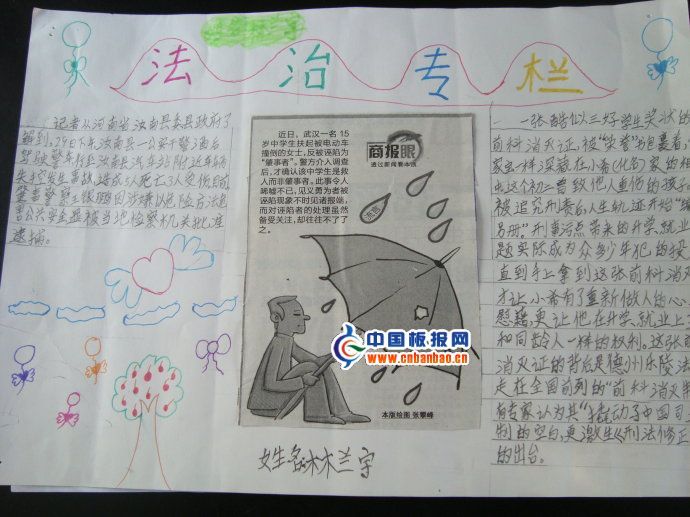 法治专栏
记者从河南省汝南县委县政府了
29日下午汝南县一公安干警酒后
驾驶警车在汝南县汽车站附近车辆
失控发生事故,造成5人死亡3人受伤目前
肇事警察王银鹏因涉嫌以危险方法危
害公共安全罪被当地检察机关批准
逮捕。
近日,武汉一名15
岁中学生扶起被电动车
撞倒的女士,反被诬陷为
“肇事者”。警方介入调查
后,才确认该中学生是救
人而非肇事者。此事令人
唏嘘不已,见义勇为者被
诬陷现象不时见诸报端,
而对诬陷者的处理虽然
备受关注,却往往不了了
之。
商报眼
透过新闻看本质
本版绘图 张攀峰
中国板报网
www.cnbanbao.cn
姓名:林木兰字
一张酷似三好学生奖状的
前科消灭证,被“荣誉”包裹着,
家宝一样深藏在小希(化名)家的
出这个初二曾致他人重伤的孩子
被追究刑责后,人生轨迹开始“
另册”。刑事污点带来的升学、就业
题实际成为众多少年犯的
直到手上拿到这张前科消灭
才让小希有了重新做人的心
慰藉更让他在升学、就业上
和同龄人一样的权利。这张
消灭证的背后是德州乐陵法
走在全国前列的“前科消灭
有专家认为其“撬动了中国司
制的空白,更激生《刑法修正
的出台。